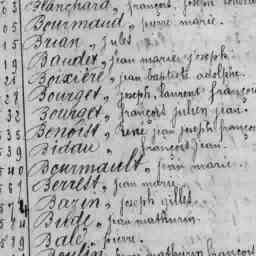 03 Blanchard, françois joseph
05 Bourmaud, pierre marie.
15 Brian, jules
19 Baudet, jean marie joseph.
21 Boixière, jean baptiste adolphe.
28 Bourget, joseph laurent françois
32 Bourget, françois julien jean.
535 Benoist, rené jean joseph françois
539 Bidau, françois jean.
540 Bourmault, jean marie.
561 Berrest, jean marie
57 Bazin, joseph gilles.
584 Bude, jean mathurin.
519 Balé, pierre.
Boulin, mathurin françois